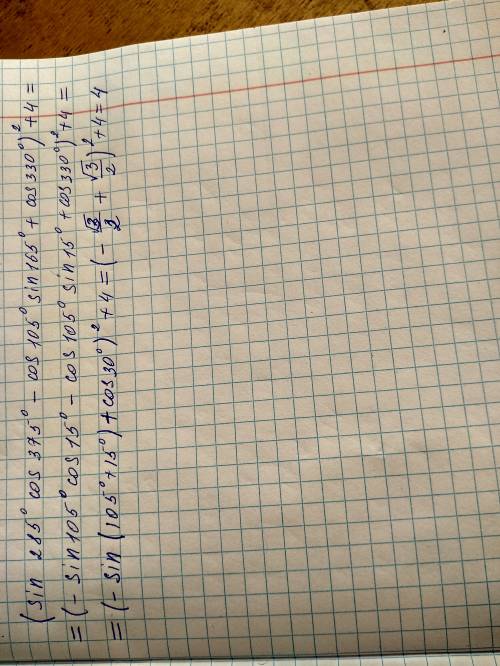 (sin 285° cos 375° - cos 105° sin 165° + cos 330°)² + 4 =
= (- sin 105° cos 15° - cos 105° sin 15° + cos 330°)² + 4 =
= (- sin (105° + 15°) + cos 30°)² + 4 = (- √3/2 + √3/2)² + 4 = 4